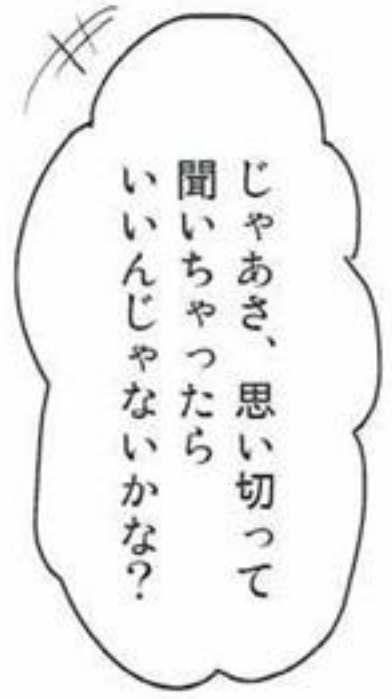 じゃあさ、思い切って
聞いちゃったら
いいんじゃないかな？